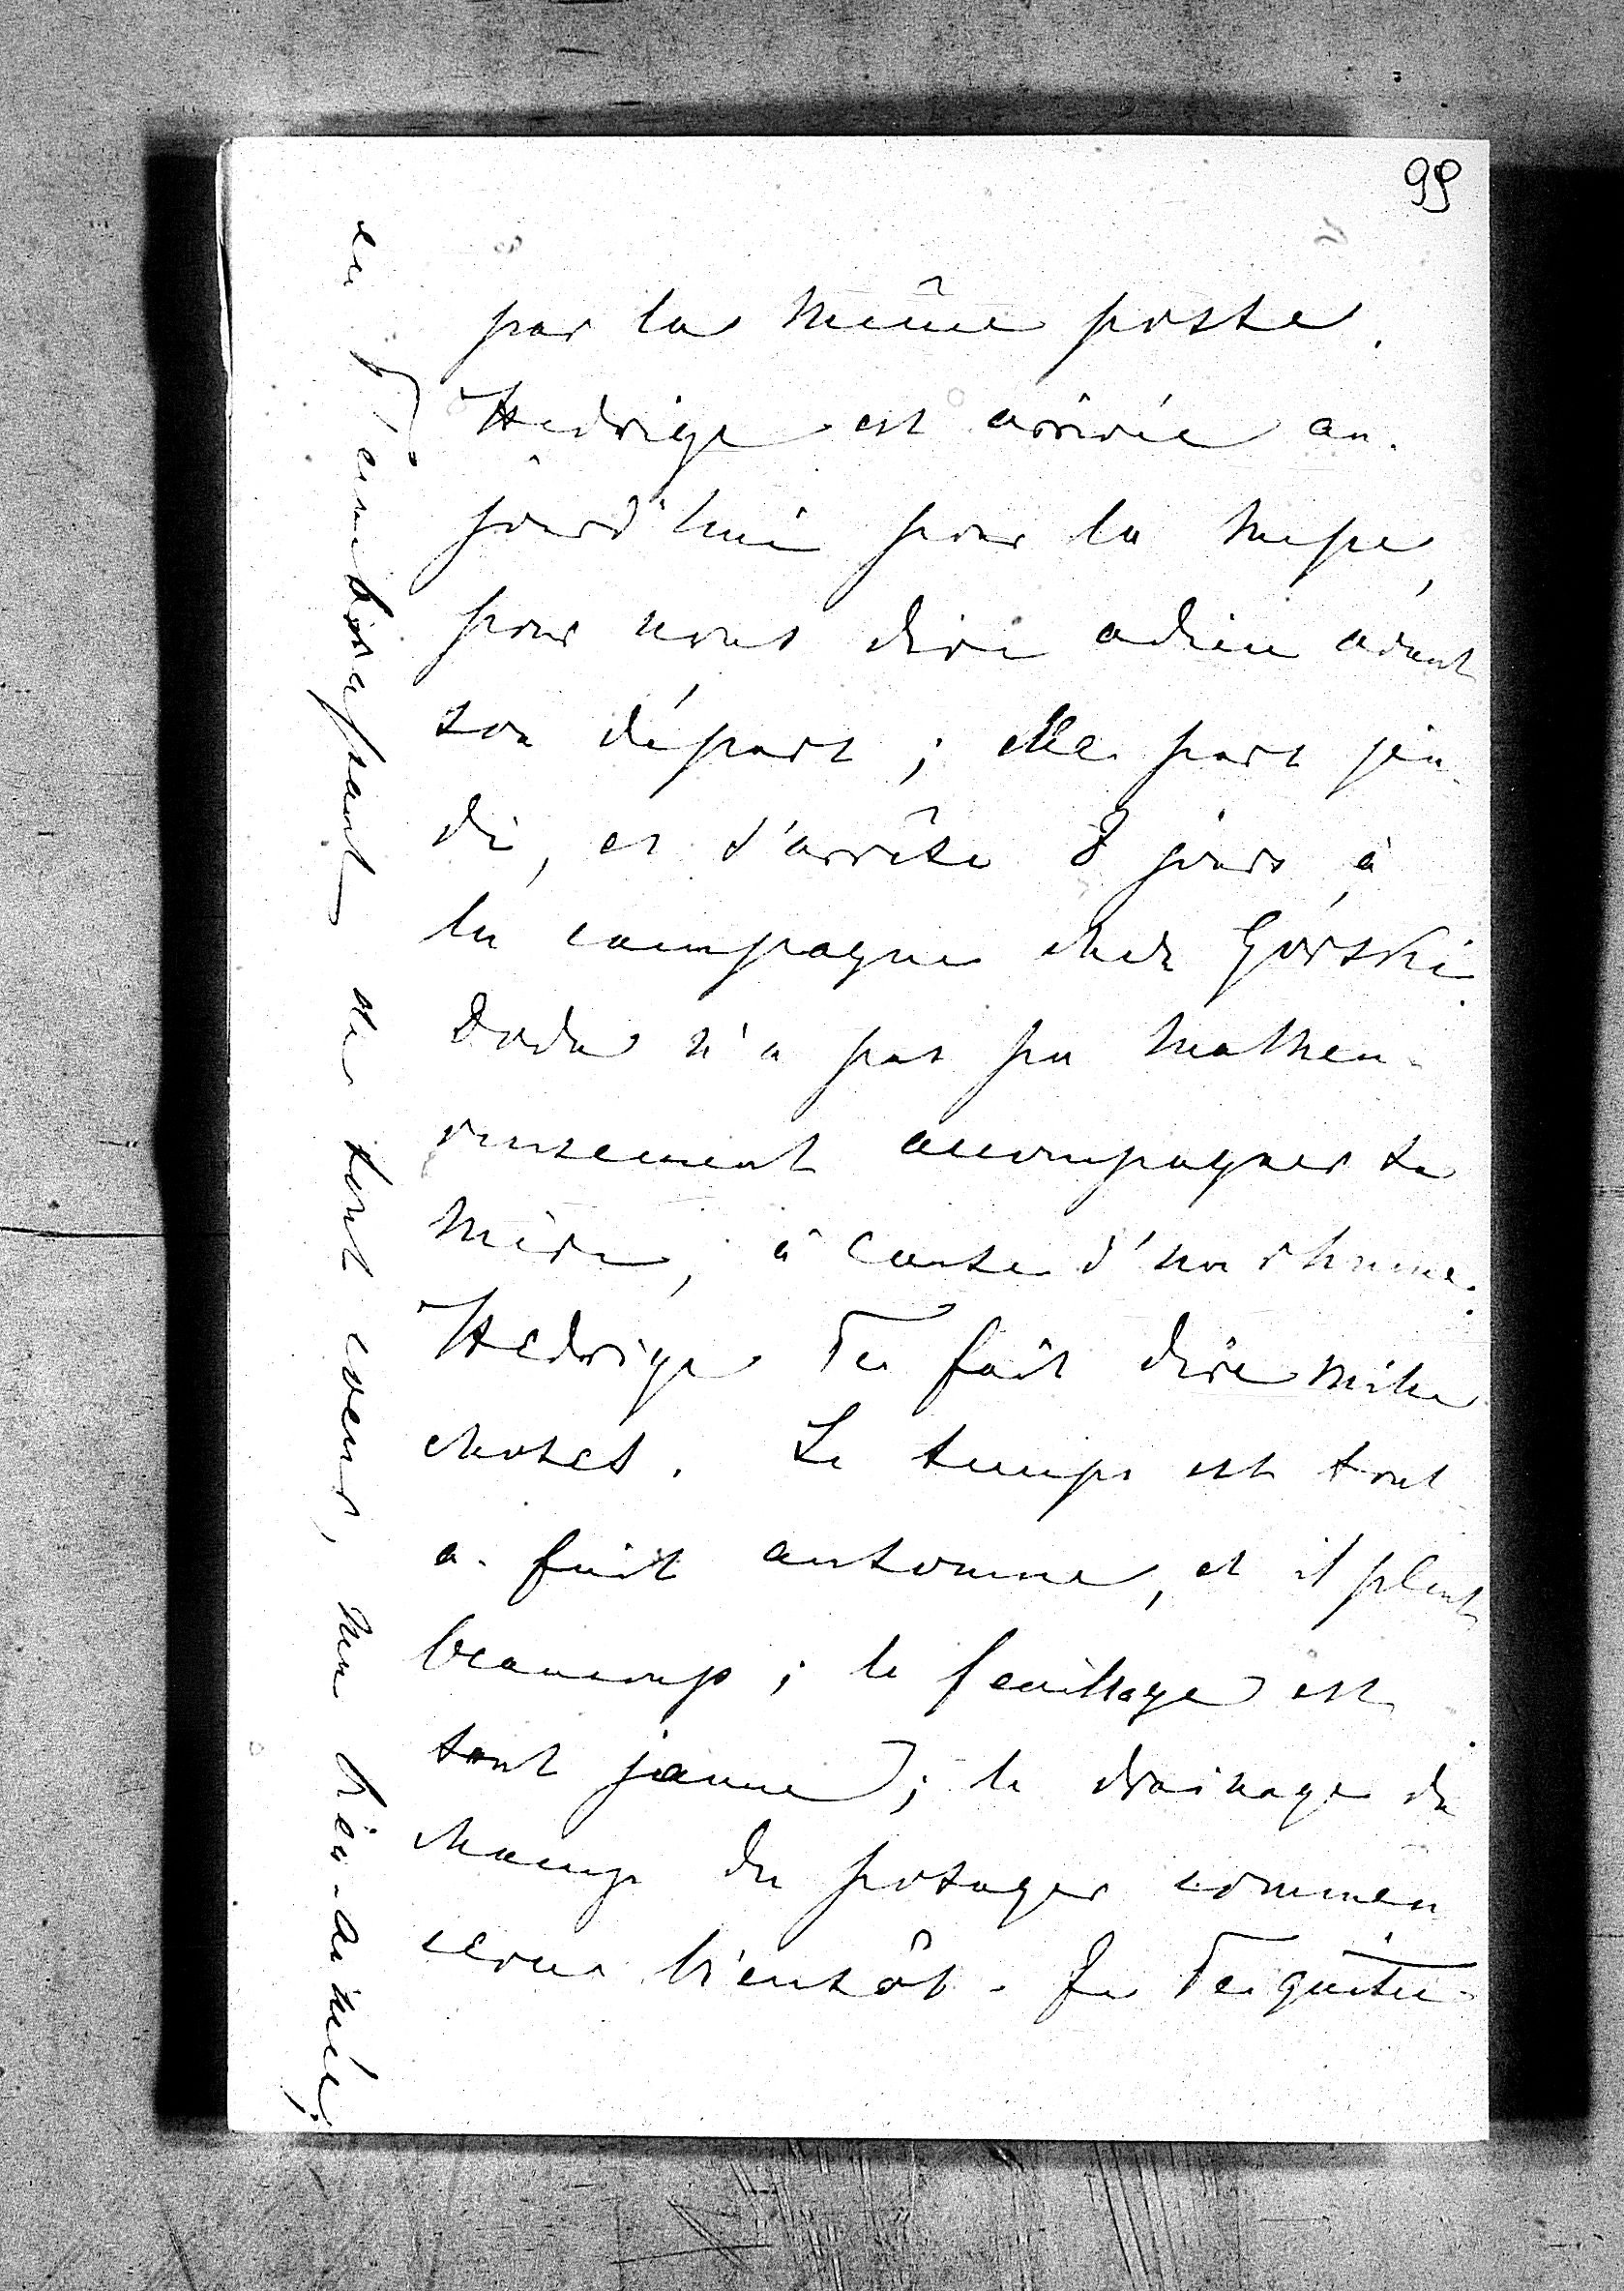 99
par la même poste.
Hedwige est arrivée au-
jourd'hui pour la messe,
pour nous dire adieu avant
son départ ; elle part jeu-
di, et s'arrête 8 jours à
la campagne chez Górski.
Doda n'a pas pu malheu-
reusement accompagner sa
mère, à cause d'un rhume.
Hedwige Te fait dire mille
choses. Le temps est tout
a-fait automne, et il pleut
beaucoup ; le feuillage est
tout jaune ; le drainage du
champ du potager commen
cera bientôt. Je Te quitte
en T'embrassant de tout coeur, ma bien-aimée!